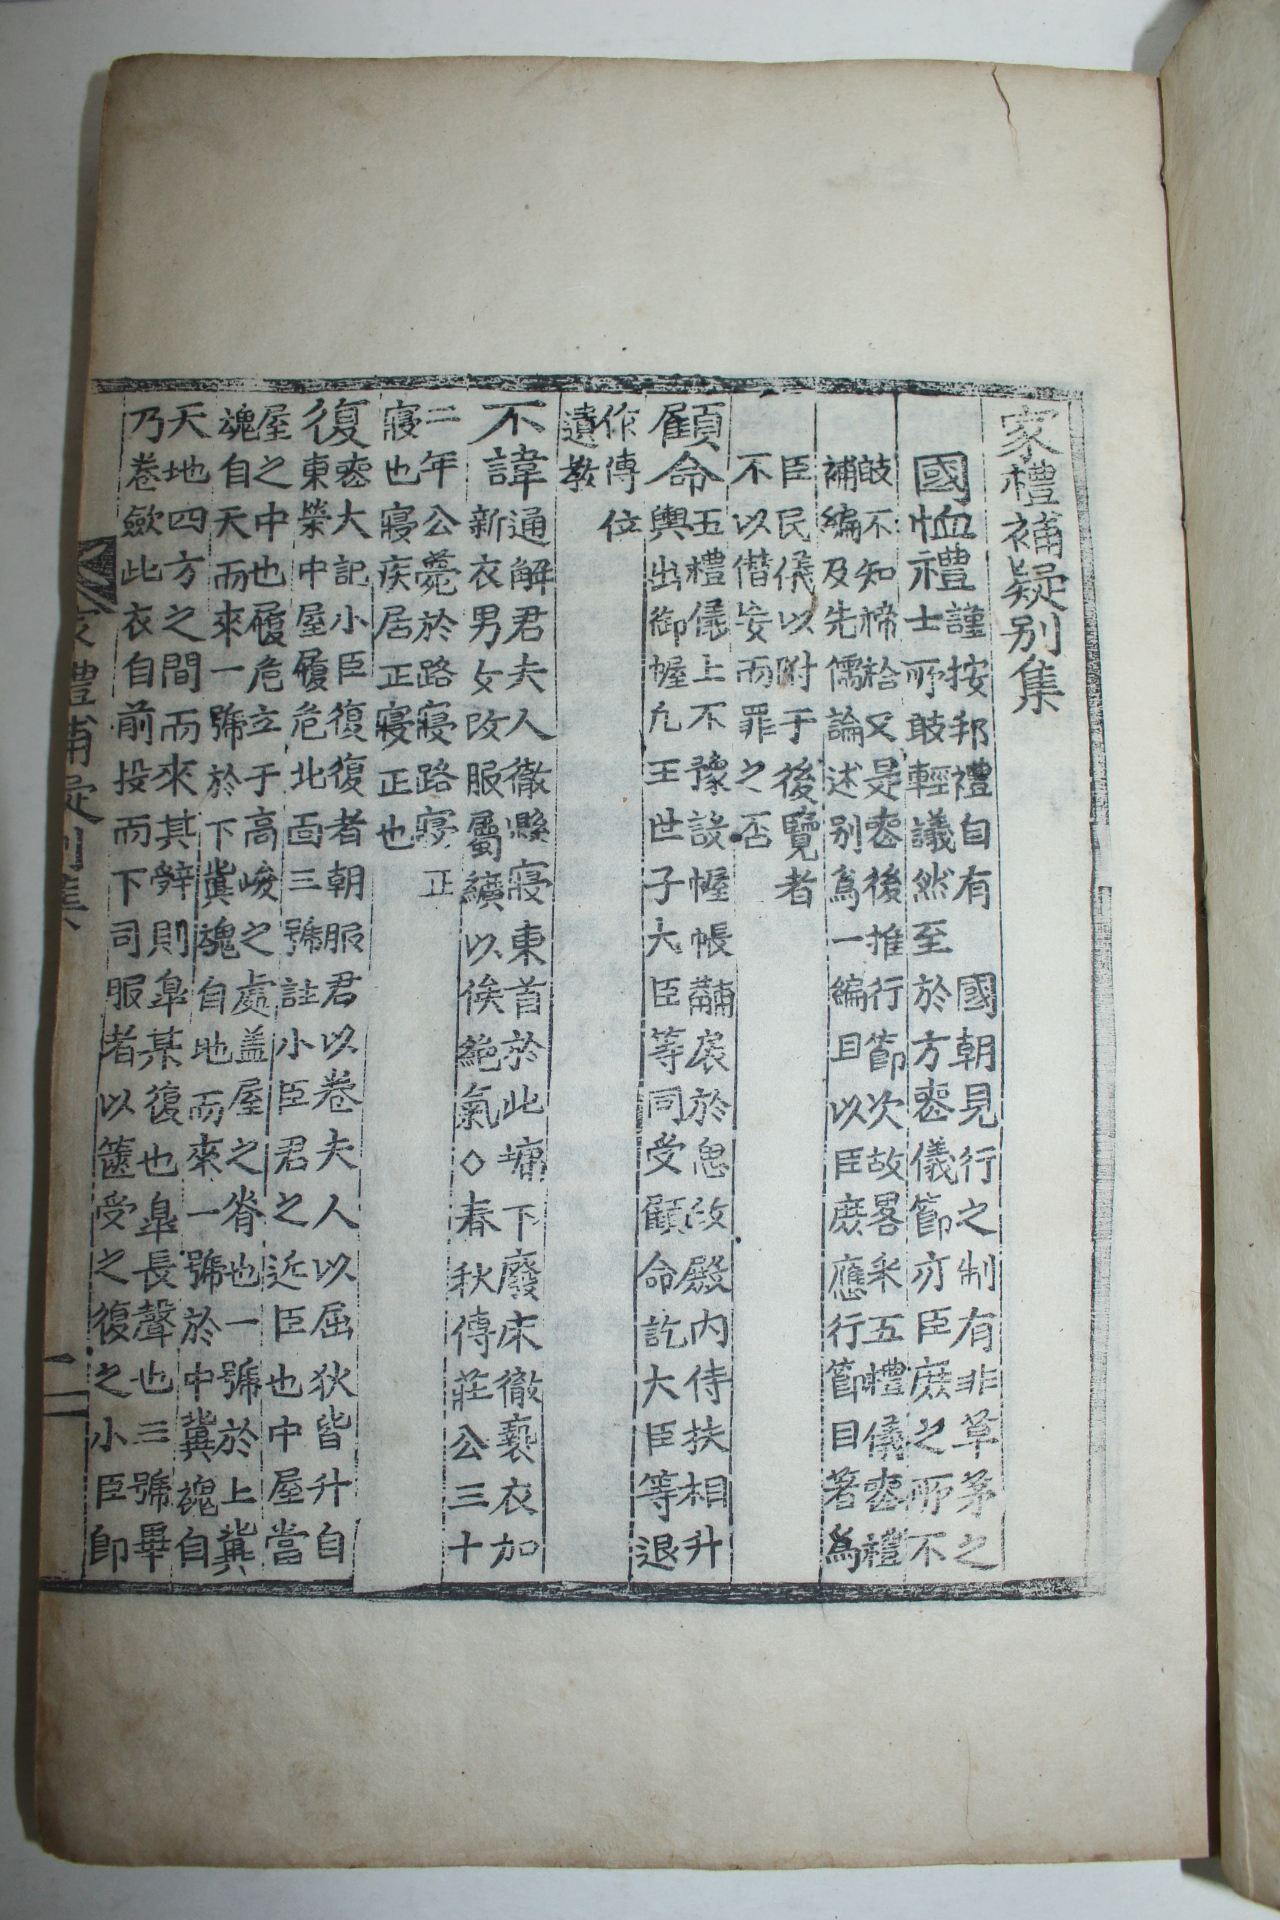 家禮補疑別集
國恤禮
謹按邦禮自有 國朝見行之制有非草茅之
士所敢輕議然至於方喪儀節亦臣庶之所不
敢不知禘祫又是喪後推行節次故畧采五禮儀喪禮
補編及先儒論述別爲一編且以臣庶應行節目著爲
臣民儀以附于後覽者
不以僭妄而罪之否
顧命
五禮儀上不豫設幄帳黼扆於思政殿內侍扶相升
輿出御幄凡王世子大臣等同受顧命訖大臣等退
作傳位
遺教
不諱
通解君夫人徹縣寢東首於北墉下廢床徹褻衣加
新衣男女改服屬纊以俟絶氣◇春秋傳莊公三十
二年公薨於路寢路寢正
寢也寢疾居正寢正也
復
喪大記小臣復復者朝服君以卷夫人以屈狄皆升自
東榮中屋履危北面三號註小臣君之近臣也中屋當
屋之中也履危立于高峻之處盖屋之脊也一號於上冀
魂自天而來一號於下冀魂自地而來一號於中冀魂自
天地四方之間而來其辤則臯某復也臯長聲也三號畢
乃卷斂此衣自前投而下司服者以篋受之復之小臣卽
家禮補疑別集
一